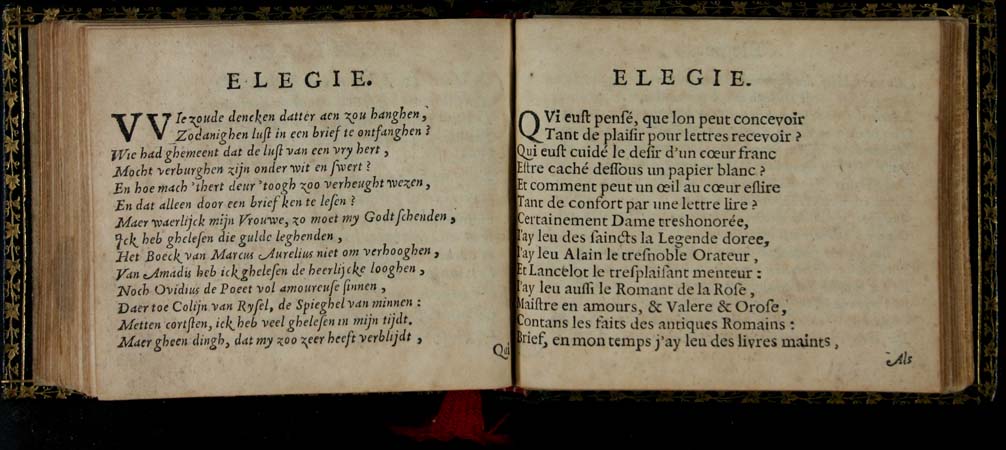 ELEGIE.
VVIe zoude dencken datter aen zou hanghen,
Zodanighen luſt in een brief te ontfanghen?
Wie had ghemeent dat de luſt van een vry hert,
Mocht verburghen zijn onder wit en ſwert?
En hoe mach 'thert deur 'toogh zoo verheught wezen,
En dat alleen door een briefken te leſen?
Maer waerlijck mijn Vrouwe, zo moet my Godt ſchenden,
Ick heb gheleſen die gulde leghenden,
Het Boeck van Marcus Aurelius niet om verhooghen,
Van Amadis heb ick gheleſen de heerlijcke looghen,
Noch Ovidius de Poeet vol amoureuſe ſinnen,
Daer toe Colijn van Ryſel, de Spieghel van minnen:
Metten cortſten, ick heb veel gheleſen in mijn tijdt.
Maer gheen dingh, dat my zoo zeer heeft verblijdt,
Qui
ELEGIE.
QVi euſt penſé, que lon peut concevoir
Tant de plaiſir pour lettres recevoir?
Qui euſt cuidé le deſir d'un cœur franc
Eſtre caché deſſous un papier blanc?
Et comment peut un œil au cœur eſlire
Tant de confort par une lettre lire?
Certainement Dame treshonorée,
I'ay leu des ſaincts la Legende doree,
I'ay leu Alain le treſnoble Orateur,
Et Lancelot le treſplaiſant menteur:
I'ay leu auſſi le Romant de la Roſe,
Maiſtre en amours, & Valere & Oroſe,
Contans les faits des antiques Romains:
Brief, en mon temps j'ay leu des livres maints,
Als